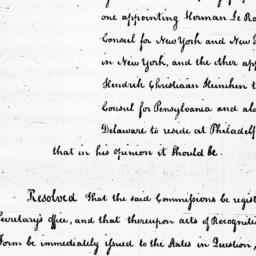 one appointing Herman Le Ro
Consul for New York and New
in New York, and the other app
Hendrik Christiaan Heineken t
Consul for Pennsylvania and al
Delaware to reside at Philadelp
that in his opinion it should be.
Resolved That the said Commissions be regist
Secretary's office, and that thereupon acts of Recogniti
Form be immediately issued to the States in Question,